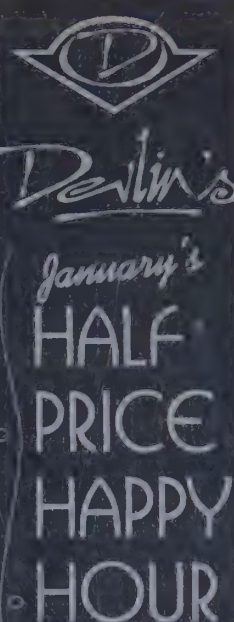 D
Devlin's
January's
HALF
PRICE
HAPPY
HOUR